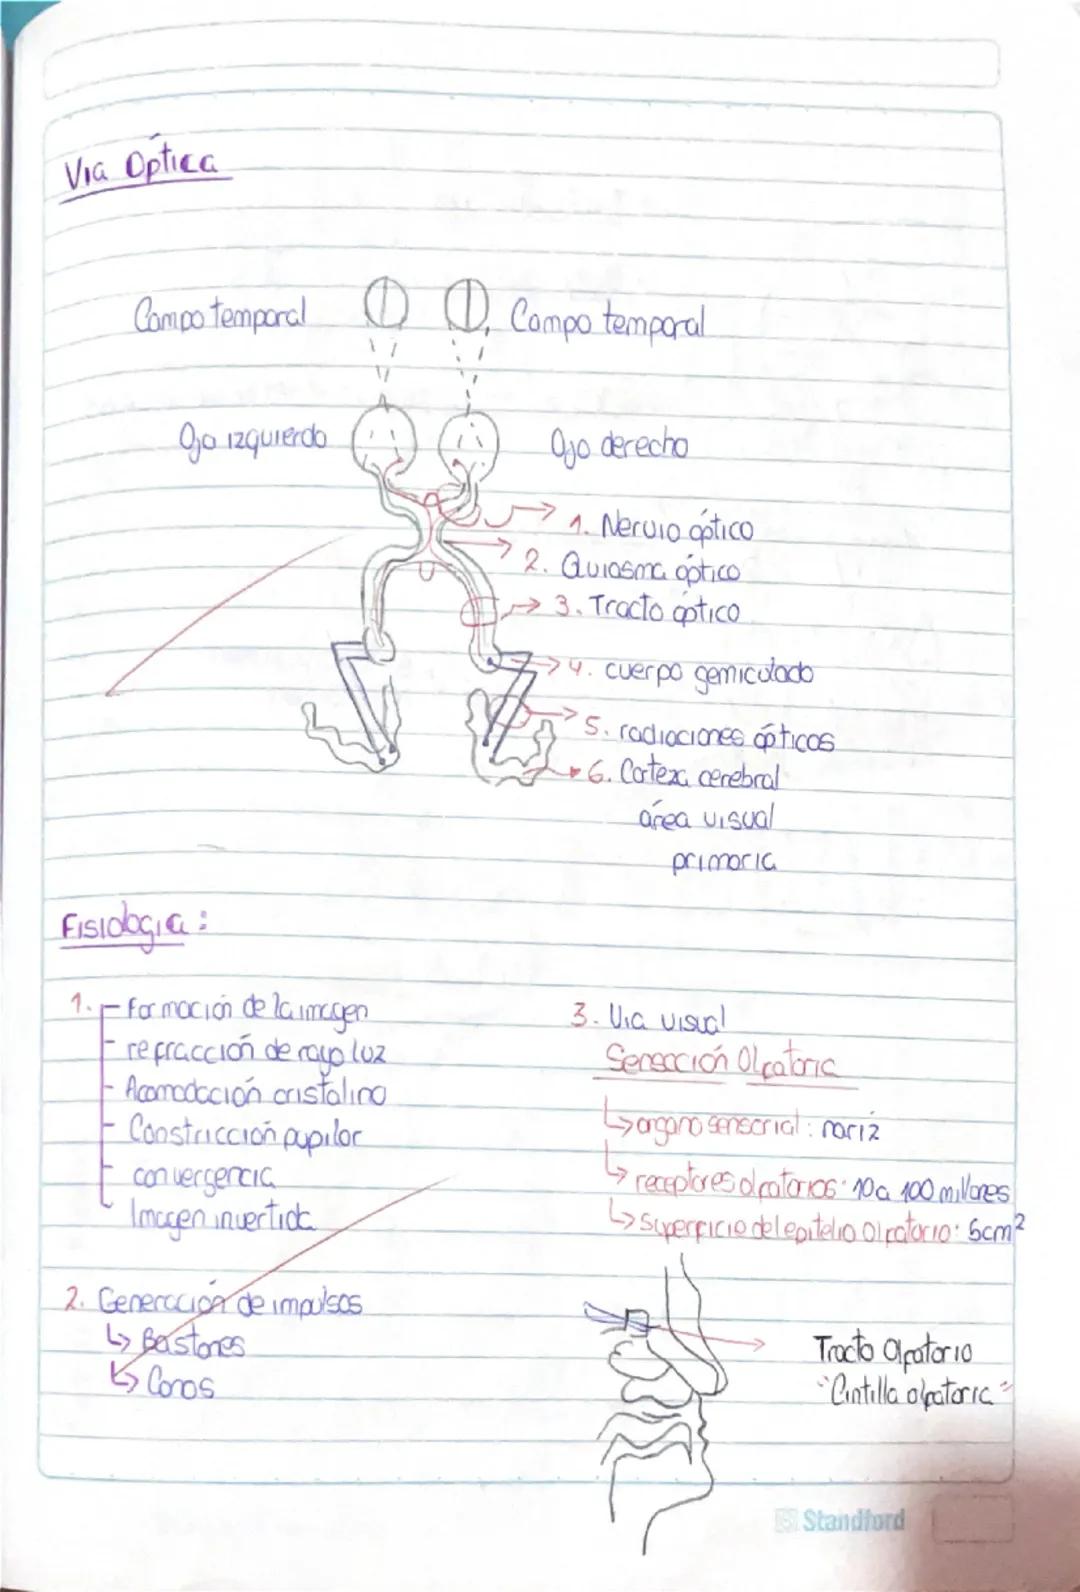 Via Óptica
Campo temporal
Campo temporal
Ojo izquierdo
Ojo derecho
1. Nervio óptico
2. Quiasma óptico
3. Tracto óptico
4. cuerpo gemiculado
5. radiaciones ópticas
6. Corteza cerebral
área visual
primaria
Fisiologia:
1. - Formación de la imagen
- refracción de rayo luz
- Acomodación cristalino
- Constricción pupilar
- convergencia
- Imagen invertida
2. Generación de impulsos
↳ Bastones
↳ Conos
3. Via visual
Sensación Olfatoria
↳ organo sensorial: nariz
↳ receptores olfatorios: 10 a 100 millones
↳ Superficie del epitelio olfatorio: 5cm²
Tracto Olfatorio
"Cintilla olfatoria"
Standford